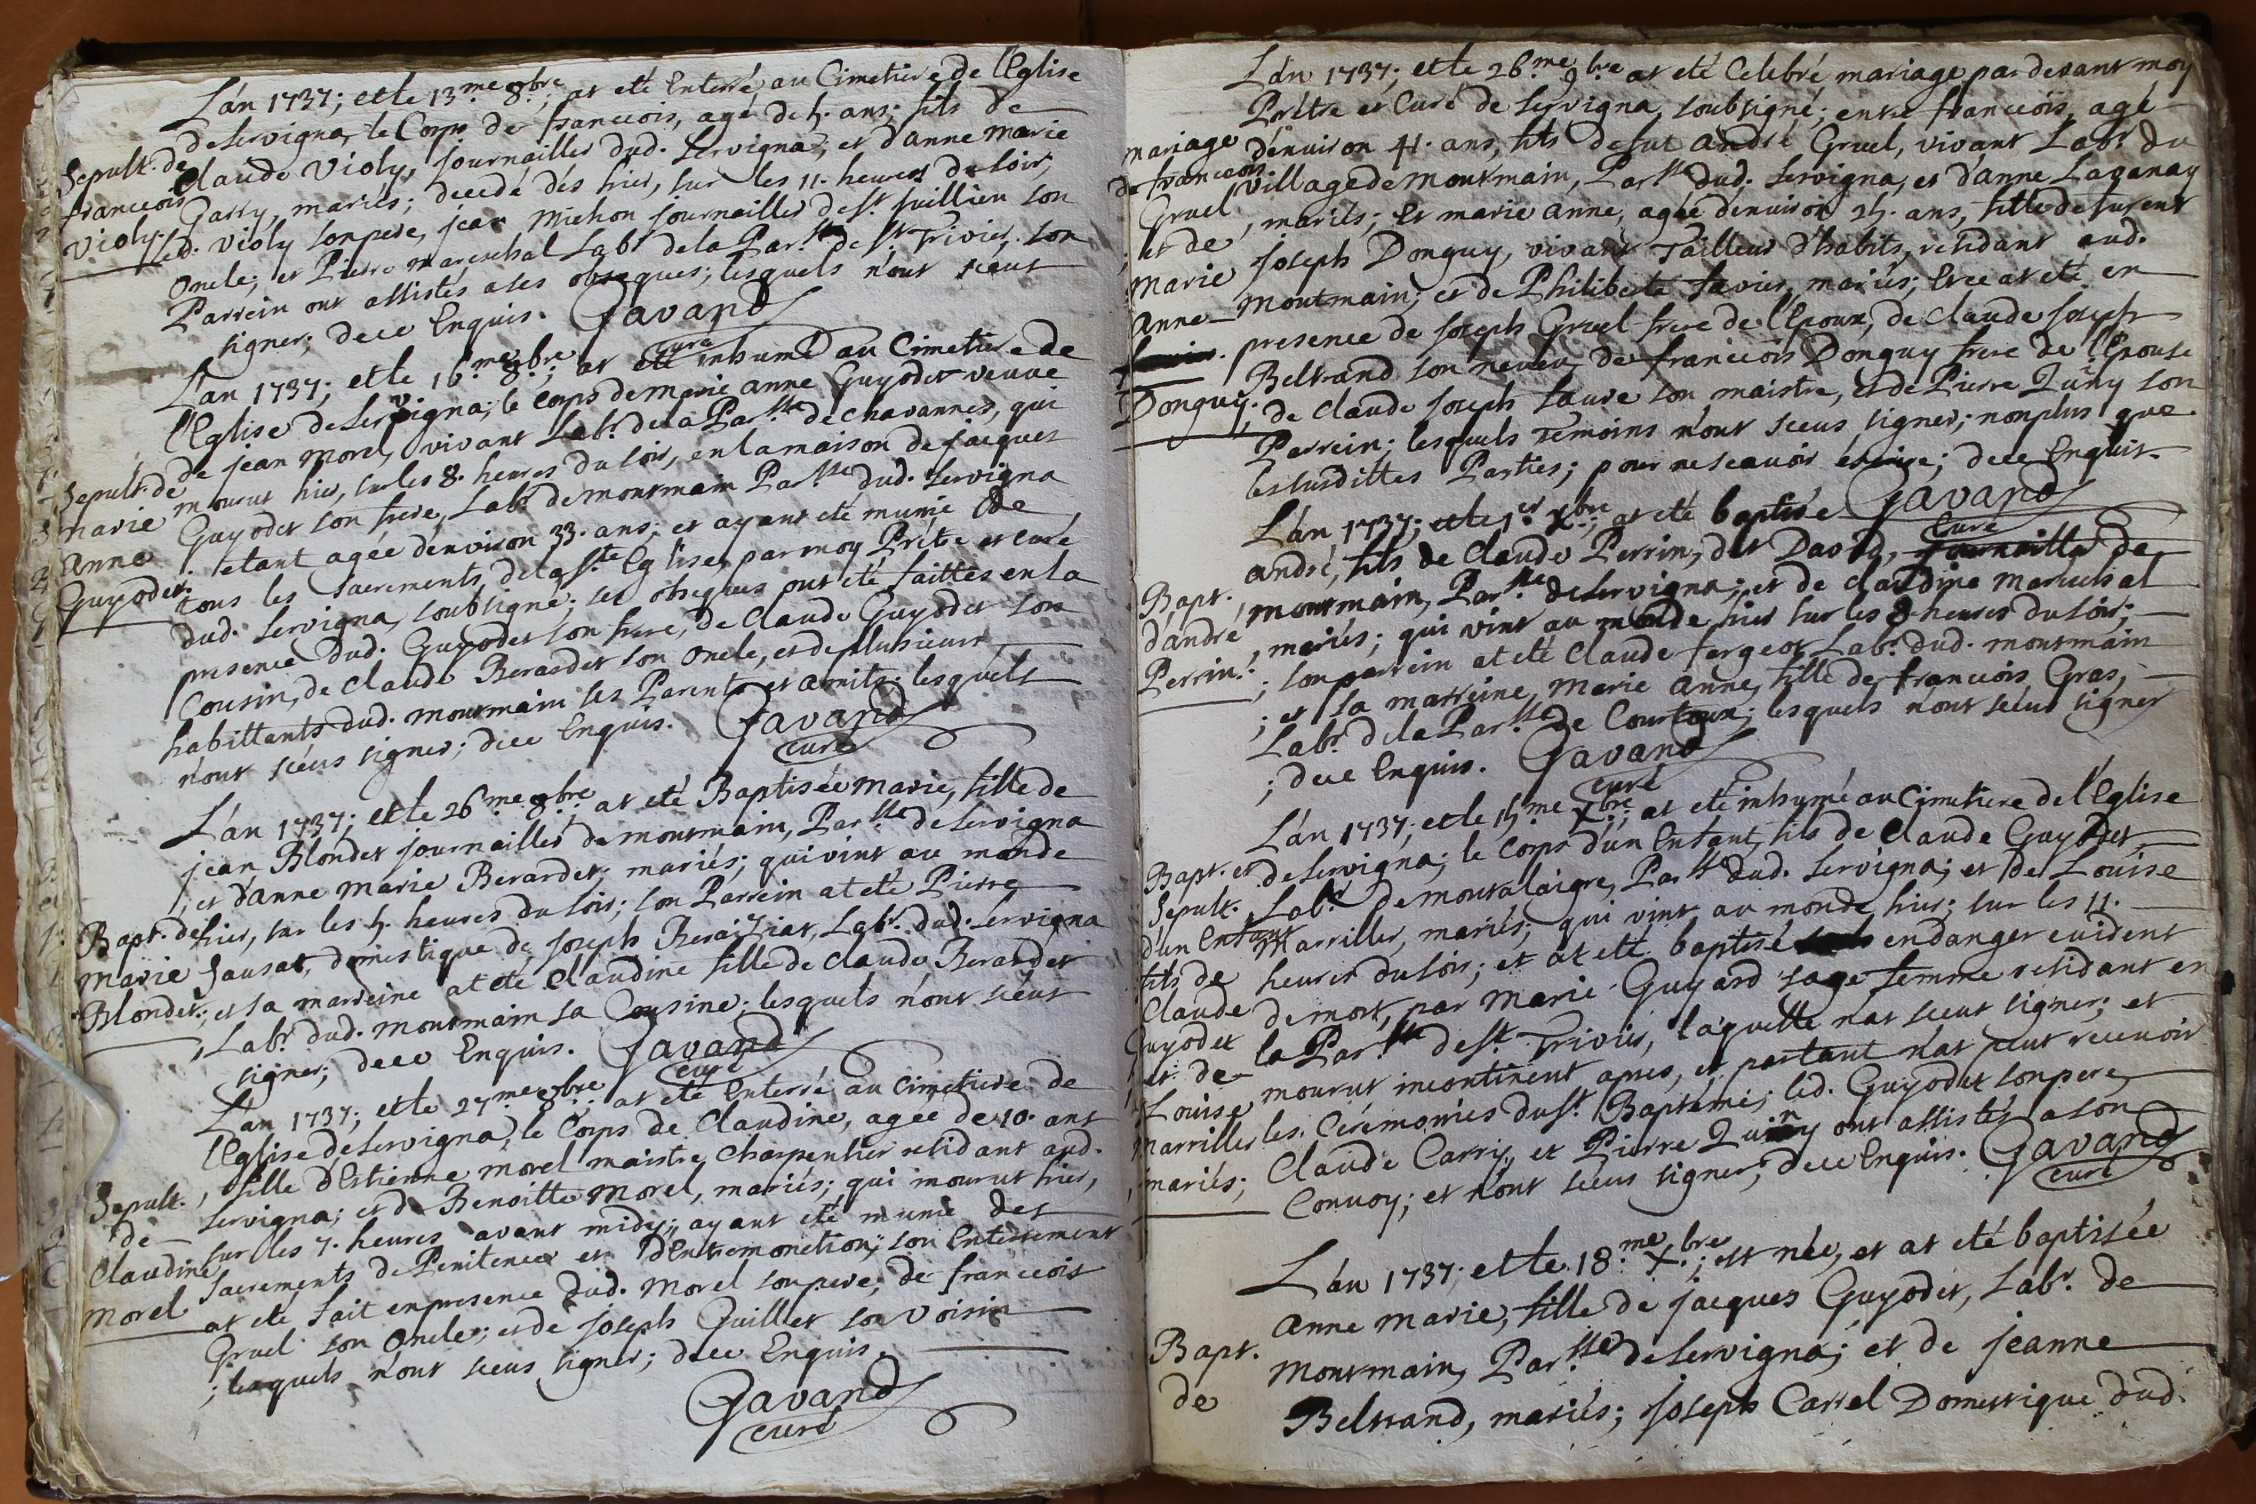 L'an 1737; et le 13.me 8.bre; at eté Enterré au Cimetiere de l'Eglise
de Servigna, le Corps de francois, agé de 5. ans; fils de
Sepult. de
francois
Violy.
Claude Violy, journaillier dud. Servigna, et d'anne Marie
Garry, mariés; decedé dés hier, sur les 11. heures du soir;
led. Violy son pere, jean Michon journaillier de St. Juillien son
Oncle; et Pierre Mareschal Labr. de la Par.sse de St. Trivier son
Parrein ont assistés a ses obseques; lesquels n'ont sceus
signer; dece Enquis. Gavand
curé
L'an 1737; et le 16.me 8.bre; at eté inhumé au Cimetiere de
l'Eglise de Servigna; le corps de Marie anne Guyodet veuve
de jean Morel, vivant Labr. de la Par.sse de chavannes, qui
Sepult. de
Marie
Anne
Guyodet.
mourut hier, sur les 8. heures du soir, en la maison de jacques
Guyodet son frere, Labr. de montmain Par.sse dud. Servigna
; etant agée d'environ 33. ans; et ayant eté munie de
tous les Sacrements de la Ste. Eglise, par moy Prêtre et curé
dud. Servigna, soubsigné; ses obseques ont eté faittes en la
presence dud. Guyodet son frere, de Claude Guyodet son
Cousin, de Claude Berardet son Oncle, et de plusieurs
habittants dud. montmain ses Parents et amits; lesquels
n'ont sceus signer; dece Enquis. Gavand
curé
L'an 1737; et le 26.me 8.bre; at eté Baptisée Marie, fille de
jean Blondet journaillier de montmain, Par.sse de Servigna
; et d'anne Marie Berardet; mariés; qui vint au monde
Bapt. de
Marie
Blondet.
hier, sur les 5. heures du soir; son Parrein at eté Pierre
Sausat, domestique de Joseph Beraiziat, Labr. dud. Servigna
; et sa marreine at eté Claudine fille de Claude Berardet
, Labr. dud. Montmain sa Cousine; lesquels n'ont sceus
signer; dece Enquis. Gavand
curé
L'an 1737; et le 27.me 8.bre; at eté Enterré au cimetiere de
l'Eglise de Servigna, le Corps de Claudine, agée de 10. ans
Sepult.
de
Claudine
Morel
, fille d'Estienne Morel maistre Charpentier residant aud.
Servigna; et de Benoitte Morel, mariés; qui mourut hier,
sur les 7. heures avant midy; ayant eté munie des
Sacrements de Penitence et d'Extremonction; son Enterrement
at eté fait en presence dud. Morel son pere, de francois
Gruel son Oncle; et de Joseph Guillet son Voisin
; lesquels n'ont sceus signer; dece Enquis.
Gavand
curé
L'an 1737; et le 26.me 9.bre at eté Celebré mariage par devant moy
Prêtre et Curé de Servigna, soubsigné; entre francois, agé
mariage
de francois
Gruel
et de
Marie
Anne
Donguy.
d'environ 41. ans, fils de fut André Gruel, vivant Labr. du
Village de Montmain, Par.sse dud. Servigna, et d'anne Laganay
, mariés; Et marie anne, agée d'environ 25. ans, fille de furent
Joseph Donguy, vivant Tailleur d'habits, residant aud.
Montmain; et de Philiberte Savier, mariés; Et ce at eté en
presence de Joseph Gruel frere de l'Epoux, de Claude Joseph
Beltrand son neveu, de francois Donguy frere de l'Epouse
, de Claude Joseph Faure son maistre, et de Pierre Quiny son
Parrein; lesquels Temoins n'ont sceus signer; non plus que
les susdittes Parties; pour ne scavoir écrire; dece Enquis.
Gavand
curé
L'an 1737; et le 1.er X.bre; at eté baptisé
André, fils de Claude Perrin, dit David, journaillier de
Bapt.
d'andré
Perrin.
Montmain, Par.sse de Servigna; et de Claudine Mareschal
, mariés; qui vint au monde hier sur les 8 heures du soir;
; son parrein at eté Claude fergeot Labr. dud. montmain
; et sa marreine, Marie Anne, fille de francois Gras,
Labr. de la Par.sse de Courtoux; lesquels n'ont sceus signer
; dece Enquis. Gavand
curé
L'an 1737; et le 15.me X.bre; at eté inhumé au Cimetiere de l'Eglise
Bapt. et
Sepult.
d'un Enfant
fils de
Claude
Guyodet
et de
Louise
Marrillier
, mariés;
de Servigna; le corps d'un Enfant, fils de Claude Guyodet,
Labr. de montalaigre, Par.sse dud. Servigna; et de Louise
Marrillier, mariés; qui vint au monde hier; sur les 11.
heures du soir; et at eté baptisé en danger evident
de mort, par Marie Guyard sage femme residant en
la Par.sse de St. Trivier, laquelle n'at sceut signer; et
mourut incontinent apres, et partant n'at peut recevoir
les Cérémonies du St. Baptême; led. Guyodet son pere,
Claude Carry, et Pierre Quiny ont assistés a son
Convoy; et n'ont sceus signer; dece Enquis. Gavand
curé
L'an 1737; et le 18.me X.bre; est née, et at eté baptisée
Anne Marie, fille de jacques Guyodet, Labr. de
Bapt.
de
Montmain, Par.sse de Servigna; et de jeanne
Beltrand, mariés; Joseph Carrel Domestique dud.